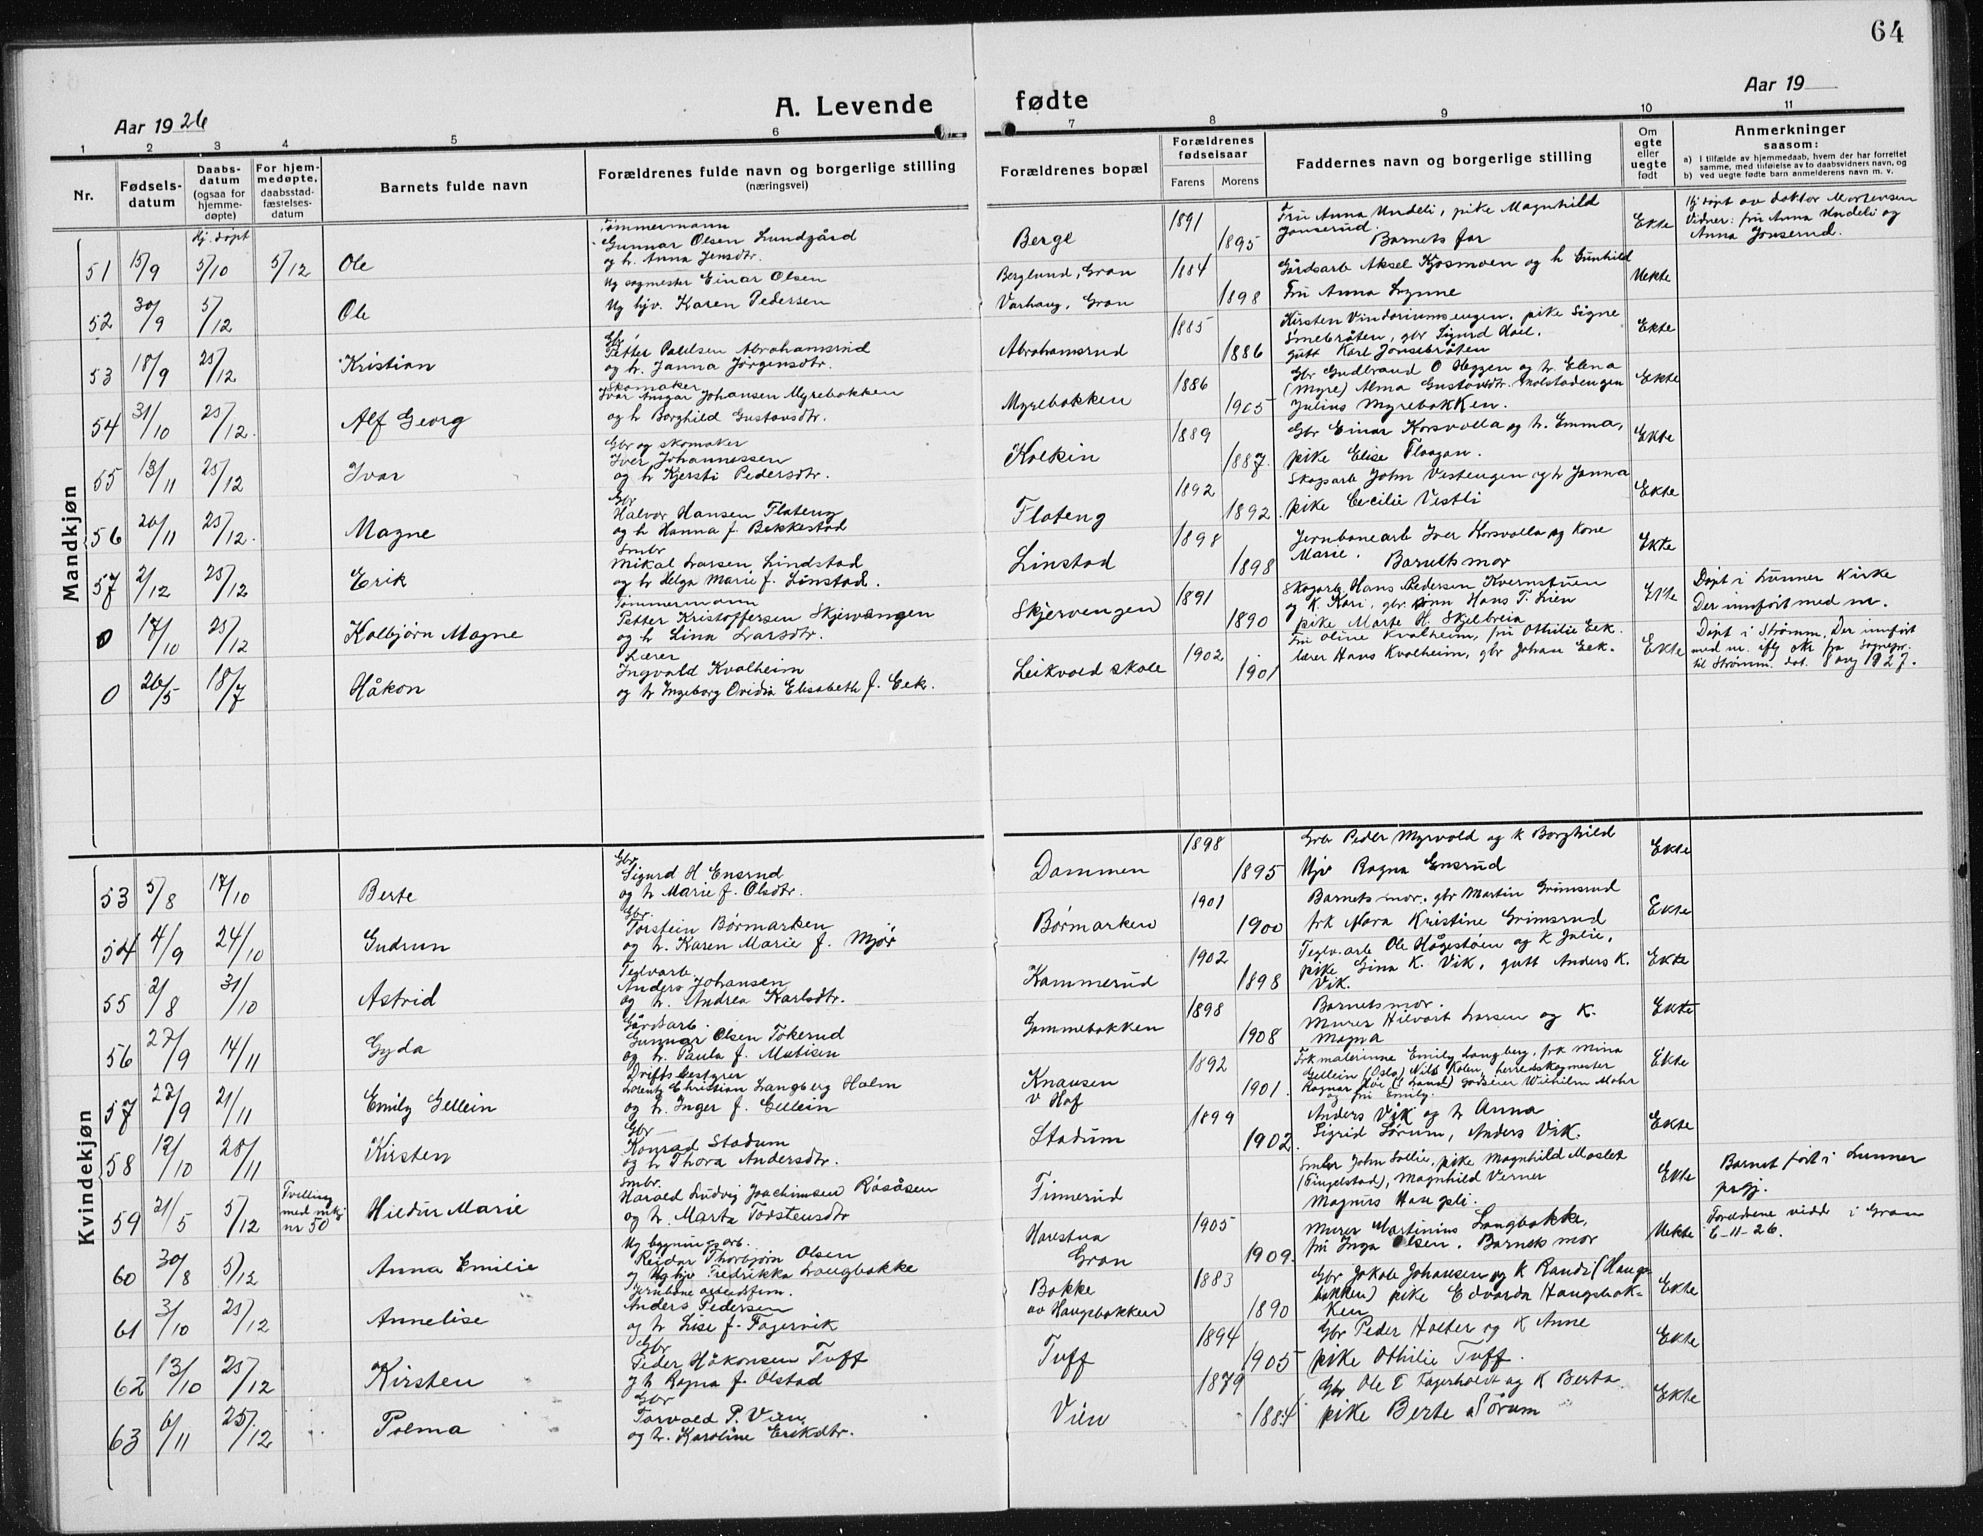 64
Aar 1926
A. Levende fødte
Aar 19
1 2 3 4 5 6 7 8 9 10 11
Nr.
Fødsels-
datum
Daabs-
datum
(ogsaa for
hjemme-
døpte)
For hjem-
medøpte,
daabsstad-
fæstelses-
datum
Barnets fulde navn
Forældrenes fulde navn og borgerlige stilling
(næringsvei)
Forældrenes bopæl
Forældrenes
fødselsaar
Farens Morens
Faddernes navn og borgerlige stilling
Om
egte
eller
uegte
født
Anmerkninger
saasom:
a) I tilfælde av hjemmedaab, hvem der har forrettet
samme, med tilføielse av to daabsvidners navn, og
b) ved uegte fødte barn anmelderens navn m. v.
Mandkjøn
Hj. døpt
51 15/9 5/10 5/12 Ole
Tømmermann
Gunnar Olsen Lundgård
og h. Anna Jensdtr.
Berge 1891 1895
Fru Anna Undeli, pike Magnhild
Jonserud. Barnets far
Ekte
Hj døpt av doktor Mortensen
Vidner: fru Anna Undeli og
Anna Jonserud.
52 30/9 5/12 Ole
Ug sagmester Einar Olsen
Ug hjv. Karen Pedersen
Berglund, Gran
Varhaug, Gran
1884 1898
Gårdsarb Aksel Kjosmoen og h Gunhild
Fru Anna Lynne
Uekte
53 18/9 25/12 Kristian
Gbr
Petter Paulsen Abrahamsrud
og h. Janna Jørgensdtr.
Abrahamsrud 1885 1886
Kirsten Vindoriumsengen, pike Signe
Smebråten, gbr Sigurd Hoel,
gutt Karl Jonsebråten
Ekte
54 31/10 25/12. Alf Georg
Skomaker
Ivar Ansgar Johansen Myrebakken
og h Borghild Gustavsdtr.
Myrebakken 1886 1905
Gbr Gudbrand O Heggen og h. Elena
(Myre) Alma Gustavsdtr. Molstadengen
Julius Myrebakken.
Ekte
55 13/11 25/12 Ivar
Gbr og skomaker
Iver Johannessen
og h Kjersti Pedersdtr.
Kolkin 1889 1887.
Gbr Einar Korsvolla og h. Emma,
pike Elise Flaagan.
Ekte
56 26/11 25/12. Magne
Gbr
Halvor Hansen Flateng
og h Hanna f. Bekkestad
Flateng 1892 1892.
Skogsarb John Vestengen og h Janna
pike Cecilie Vestli
Ekte
57 2/12 25/12 Erik
Smbr
Mikal Larsen Lindstad
og h Helga Marie f. Linstad.
Linstad 1898 1898
Jernbanearb Iver Korsvolla og kone
Marie. Barnets mor
Ekte
0 17/10 25/12 Kolbjørn Magne
Tømmermann
Petter Kristoffersen Skjervangen
og h Lina Larsdtr.
Skjervengen 1891 1890
Skogarb Hans Pedersen Kvernstuen
og K. Kari, gbr.sønn Hans T. Lien
pike Marte H. Skjelbreia
Ekte
Døpt i Lunner Kirke
Der innført med nr.
0 26/5 18/7 Håkon
Lærer
Ingvald Kvalheim
og h Ingeborg Ovidia Elisabeth f. Eek.
Leikvold skole 1902 1901
Fru Oline Kvalheim, fru Othilie Eek.
lærer Hans Kvalheim, gbr Johan Eek.
Ekte
Døpt i Strømm. Der innført
med nr. iflg skr fra Sognepr.
til Strømm. dat. 8 aug 1927.
Kvindekjøn
53 5/8 17/10 Berte
Gbr
Sigurd H Ensrud
og h Marie f. Olsdtr.
Dammen 1898 1895
Gbr Peder Myrvold og K Borghild
Hjv Ragna Ensrud
Ekte
54 4/9 24/10 Gudrun
Gbr.
Torstein Børmarken
og h. Karen Marie f. Mjør
Børmarken 1901 1900
Barnets mor, gbr Martin Grimsrud
frk Nora Kristine Grimsrud
Ekte
55 2/8 31/10 Astrid
Teglvarb.
Anders Johansen
og h. Andrea Karlsdtr.
Kammerud 1902 1898
Teglv.arb Ole Hågestøen og K Julie,
pike Gina K. Vik, gutt Anders K.
Vik.
Ekte
56 27/9 14/11 Gyda
Gårdsarb.
Gunnar Olsen Tokerud
og h. Paula f. Matisen
Gammebakken 1898 1908
Barnets mor.
Murer Hilvart Larsen og K.
Magna
Ekte
57 22/9 21/11 Emily Gellein
Driftsbestyrer
Lorentz Christian Langberg Holm
og h. Inger f. Gellein
Knausen
v Hof
1892 1901.
Frk malerinne Emily Langberg, frk Mina
Gellein (Oslo) Nils Kolen, herredskogmester
Ragnar Høie (S Land) godseier Wilhelm Mohr
og fru Emily.
Ekte
58 12/10 28/11 Kirsten
Gbr
Konrad Stadum
og h Thora Andersdtr.
Stadum 1899 1902
Anders Vik og h Anna
Sigrid Sørum, Anders Vik.
Ekte
59 21/5 5/12
Tvilling
med mkj
nr 50
Hildur Marie
Smbr.
Harald Ludvig Joachimsen Råsåsen
og h. Marta Torstensdtr
Finnerud
Smbr John Sollie, pike Magnhild Moslet
(Tingelstad), Magnhild Verner
Magnus Haugsli.
Ekte
Barnet ført i Lunner
prgj.
60 30/8 5/12 Anna Emilie
Ug bygningsarb.
Reidar Thorbjørn Olsen
og Ug hjv Fredrikka Langbakke
Harestua
Gran
1905 1909.
Murer Martinius Langbakke,
fru Inga Olsen. Barnets mor
Uekte
Foreldrene viede i Gran
6-11-26.
61 3/10 25/12 Annelise
Jernbane arbeidsform.
Anders Pedersen
og h Lise f. Fagervik
Bakke
av Haugsbakken
1883 1890
Gbr Jakob Johansen og K Randi (Haugs-
bakken) pike Edvarda Haugsbak-
ken
Ekte
62 13/10 25/12 Kirsten
Gbr
Peder Håkonsen Tuff
og h Ragna f. Olstad
Tuff 1894 1905
Gbr Peder Holter og K Anne
pike Othilie Tuff.
Ekte
63 6/11 25/12 Polma
Gbr
Torvald P. Vien
og h. Karoline Eriksdtr.
Vien 1879 1884
Gbr Ole E Fagerholdt og K Berta
pike Berte Sørum
Ekte